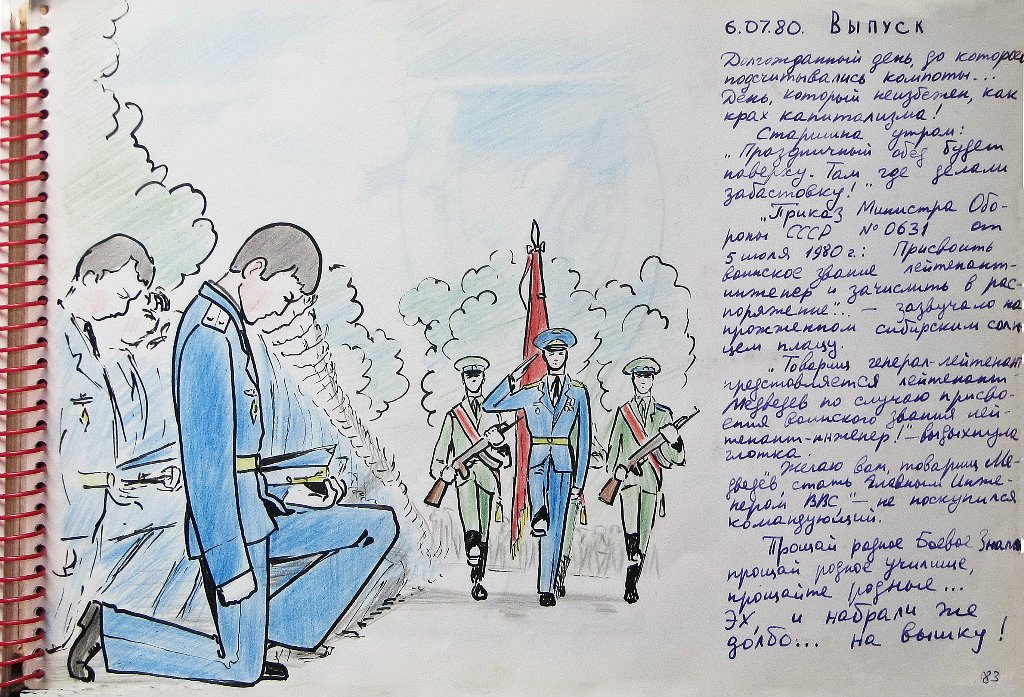 6.07.80. Выпуск
Долгожданный день, до которого
подсчитывались компоты...
День, который неизбежен, как
крах капитализма!
Старшина утром:
„Праздничный обед будет
наверху. Там где делали
забастовку!"
„Приказ Министра Обо-
роны СССР №0631 от
5 июля 1980 г: Присвоить
воинское звание лейтенант-
инженер и зачислить в рас-
поряжение"... — зазвучало на
прожженном сибирским солн-
цем плацу.
„Товарищ генерал-лейтенант
представляется лейтенант
Медведев по случаю присво-
ения воинского звания лей-
тенант-инженер!" — выдыхнула
глотка.
„Желаю вам, товарищ Ме-
дведев стать Главным Инже-
нером ВВС," — не поскупился
командующий.
Прощай родное Боевое Знамя
прощай родное училище,
прощайте родные...
Эх, и набрали же
долбо... на вышку!
83